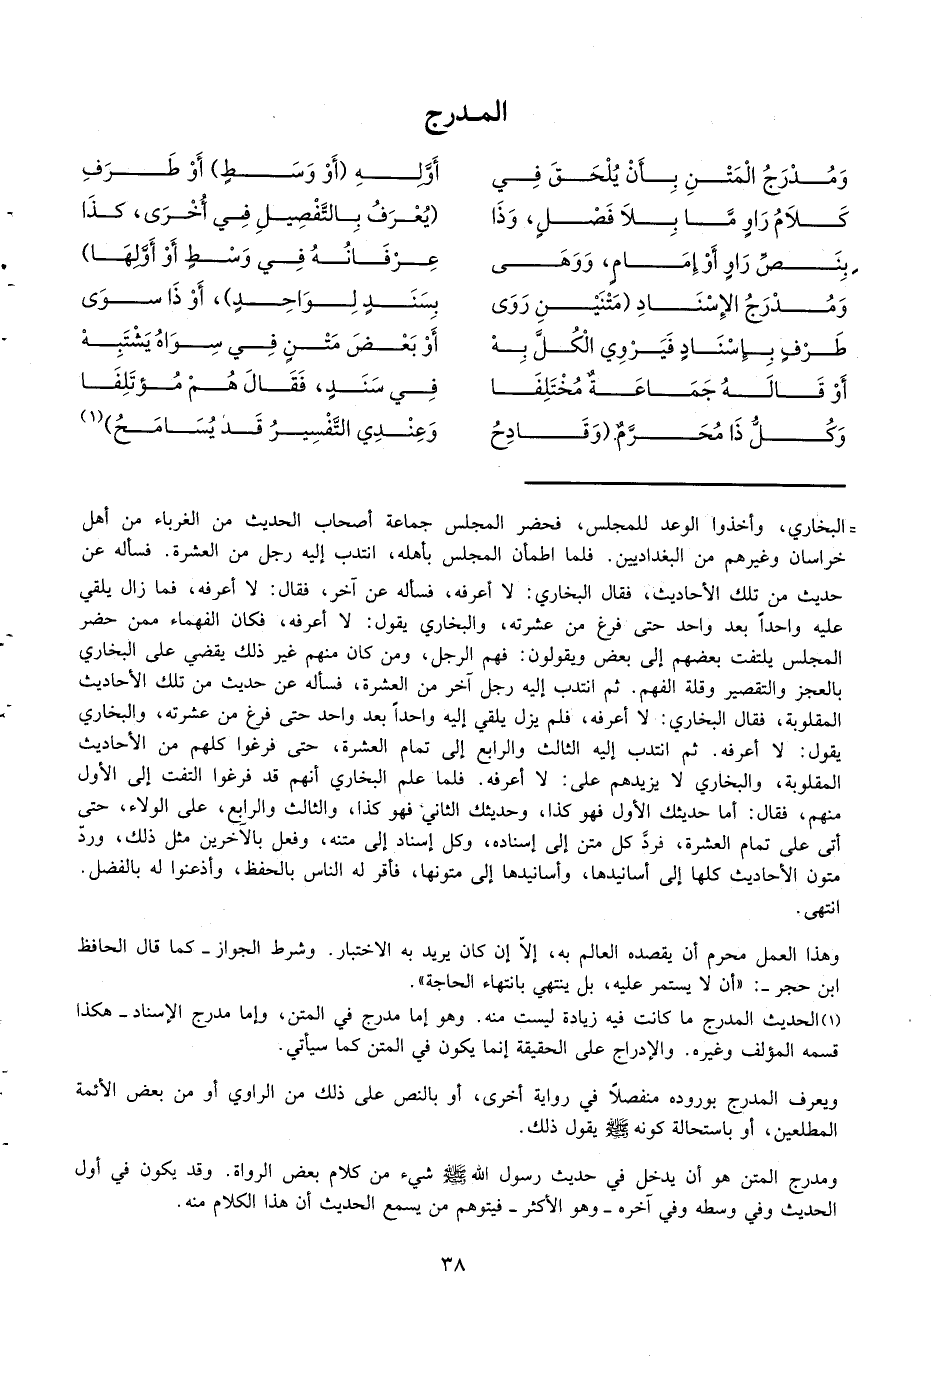 المدرج
وَمُدْرَجُ المَتْنِ بِأَنْ يُلْحَقَ فِي أَوَّلِهِ (أَوْ وَسَطٍ) أَوْ طَرَفِ
كَلَامُ رَاوٍ مَّا بِلَا فَصْلٍ، وَذَا (يُعْرَفُ بِالتَّفْصِيلِ فِي أُخْرَى، كَذَا
بِنَصِّ رَاوٍ أَوْ إِمَامٍ، وَوَهَى عِرْفَانُهُ فِي وَسْطٍ أَوْ أَوَّلِهَا)
وَمُدْرَجُ الإِسْنَادِ (مَتْنَيْنِ رَوَى بِسَنَدٍ لِوَاحِدٍ)، أَوْ ذَا سِوَى
طَرْفٍ بِإِسْنَادٍ فَيَرْوِي الْكُلَّ بِهْ أَوْ بَعْضَ مَتْنٍ فِي سِوَاهُ يَشْتَبِهْ
أَوْ قَالَهُ جَمَاعَةٌ مُخْتَلِفَا فِي سَنَدٍ، فَقَالَ هُمْ مُؤتَلِفَا
وَكُلُّ ذَا مُحَرَّمٌ (وَقَادِحُ وَعِنْدِي التَّفْسِيرُ قَدْ يُسَامَحُ)(١)
= البخاري، وأخذوا الوعد للمجلس، فحضر المجلس جماعة أصحاب الحديث من الغرباء من أهل
خراسان وغيرهم من البغداديين. فلما اطمأن المجلس بأهله، انتدب إليه رجل من العشرة. فسأله عن
حديث من تلك الأحاديث، فقال البخاري: لا أعرفه، فسأله عن آخر، فقال: لا أعرفه، فما زال يلقي
عليه واحداً بعد واحد حتى فرغ من عشرته، والبخاري يقول: لا أعرفه، فكان الفهماء ممن حضر
المجلس يلتفت بعضهم إلى بعض ويقولون: فهم الرجل، ومن كان منهم غير ذلك يقضي على البخاري
بالعجز والتقصير وقلة الفهم. ثم انتدب إليه رجل آخر من العشرة، فسأله عن حديث من تلك الأحاديث
المقلوبة، فقال البخاري: لا أعرفه، فلم يزل يلقي إليه واحداً بعد واحد حتى فرغ من عشرته، والبخاري
يقول: لا أعرفه. ثم انتدب إليه الثالث والرابع إلى تمام العشرة، حتى فرغوا كلهم من الأحاديث
المقلوبة، والبخاري لا يزيدهم على: لا أعرفه. فلما علم البخاري أنهم قد فرغوا التفت إلى الأول
منهم، فقال: أما حديثك الأول فهو كذا، وحديثك الثاني فهو كذا، والثالث والرابع، على الولاء، حتى
أتى على تمام العشرة، فردَّ كل متن إلى إسناده، وكل إسناد إلى متنه، وفعل بالآخرين مثل ذلك، وردّ
متون الأحاديث كلها إلى أسانيدها، وأسانيدها إلى متونها، فأقر له الناس بالحفظ، وأذعنوا له بالفضل.
انتهى.
وهذا العمل محرم أن يقصده العالم به، إلاّ إن كان يريد به الاختبار. وشرط الجواز ـ كما قال الحافظ
ابن حجر ـ: «أن لا يستمر عليه، بل ينتهي بانتهاء الحاجة».
(١) الحديث المدرج ما كانت فيه زيادة ليست منه. وهو إما مدرج في المتن، وإما مدرج الإسناد ـ هكذا
قسمه المؤلف وغيره. والإدراج على الحقيقة إنما يكون في المتن كما سيأتي.
ويعرف المدرج بوروده منفصلاً في رواية أخرى، أو بالنص على ذلك من الراوي أو من بعض الأئمة
المطلعين، أو باستحالة كونه ﷺ يقول ذلك.
ومدرج المتن هو أن يدخل في حديث رسول الله ﷺ شيء من كلام بعض الرواة. وقد يكون في أول
الحديث وفي وسطه وفي آخره ـ وهو الأكثر ـ فيتوهم من يسمع الحديث أن هذا الكلام منه.
٣٨